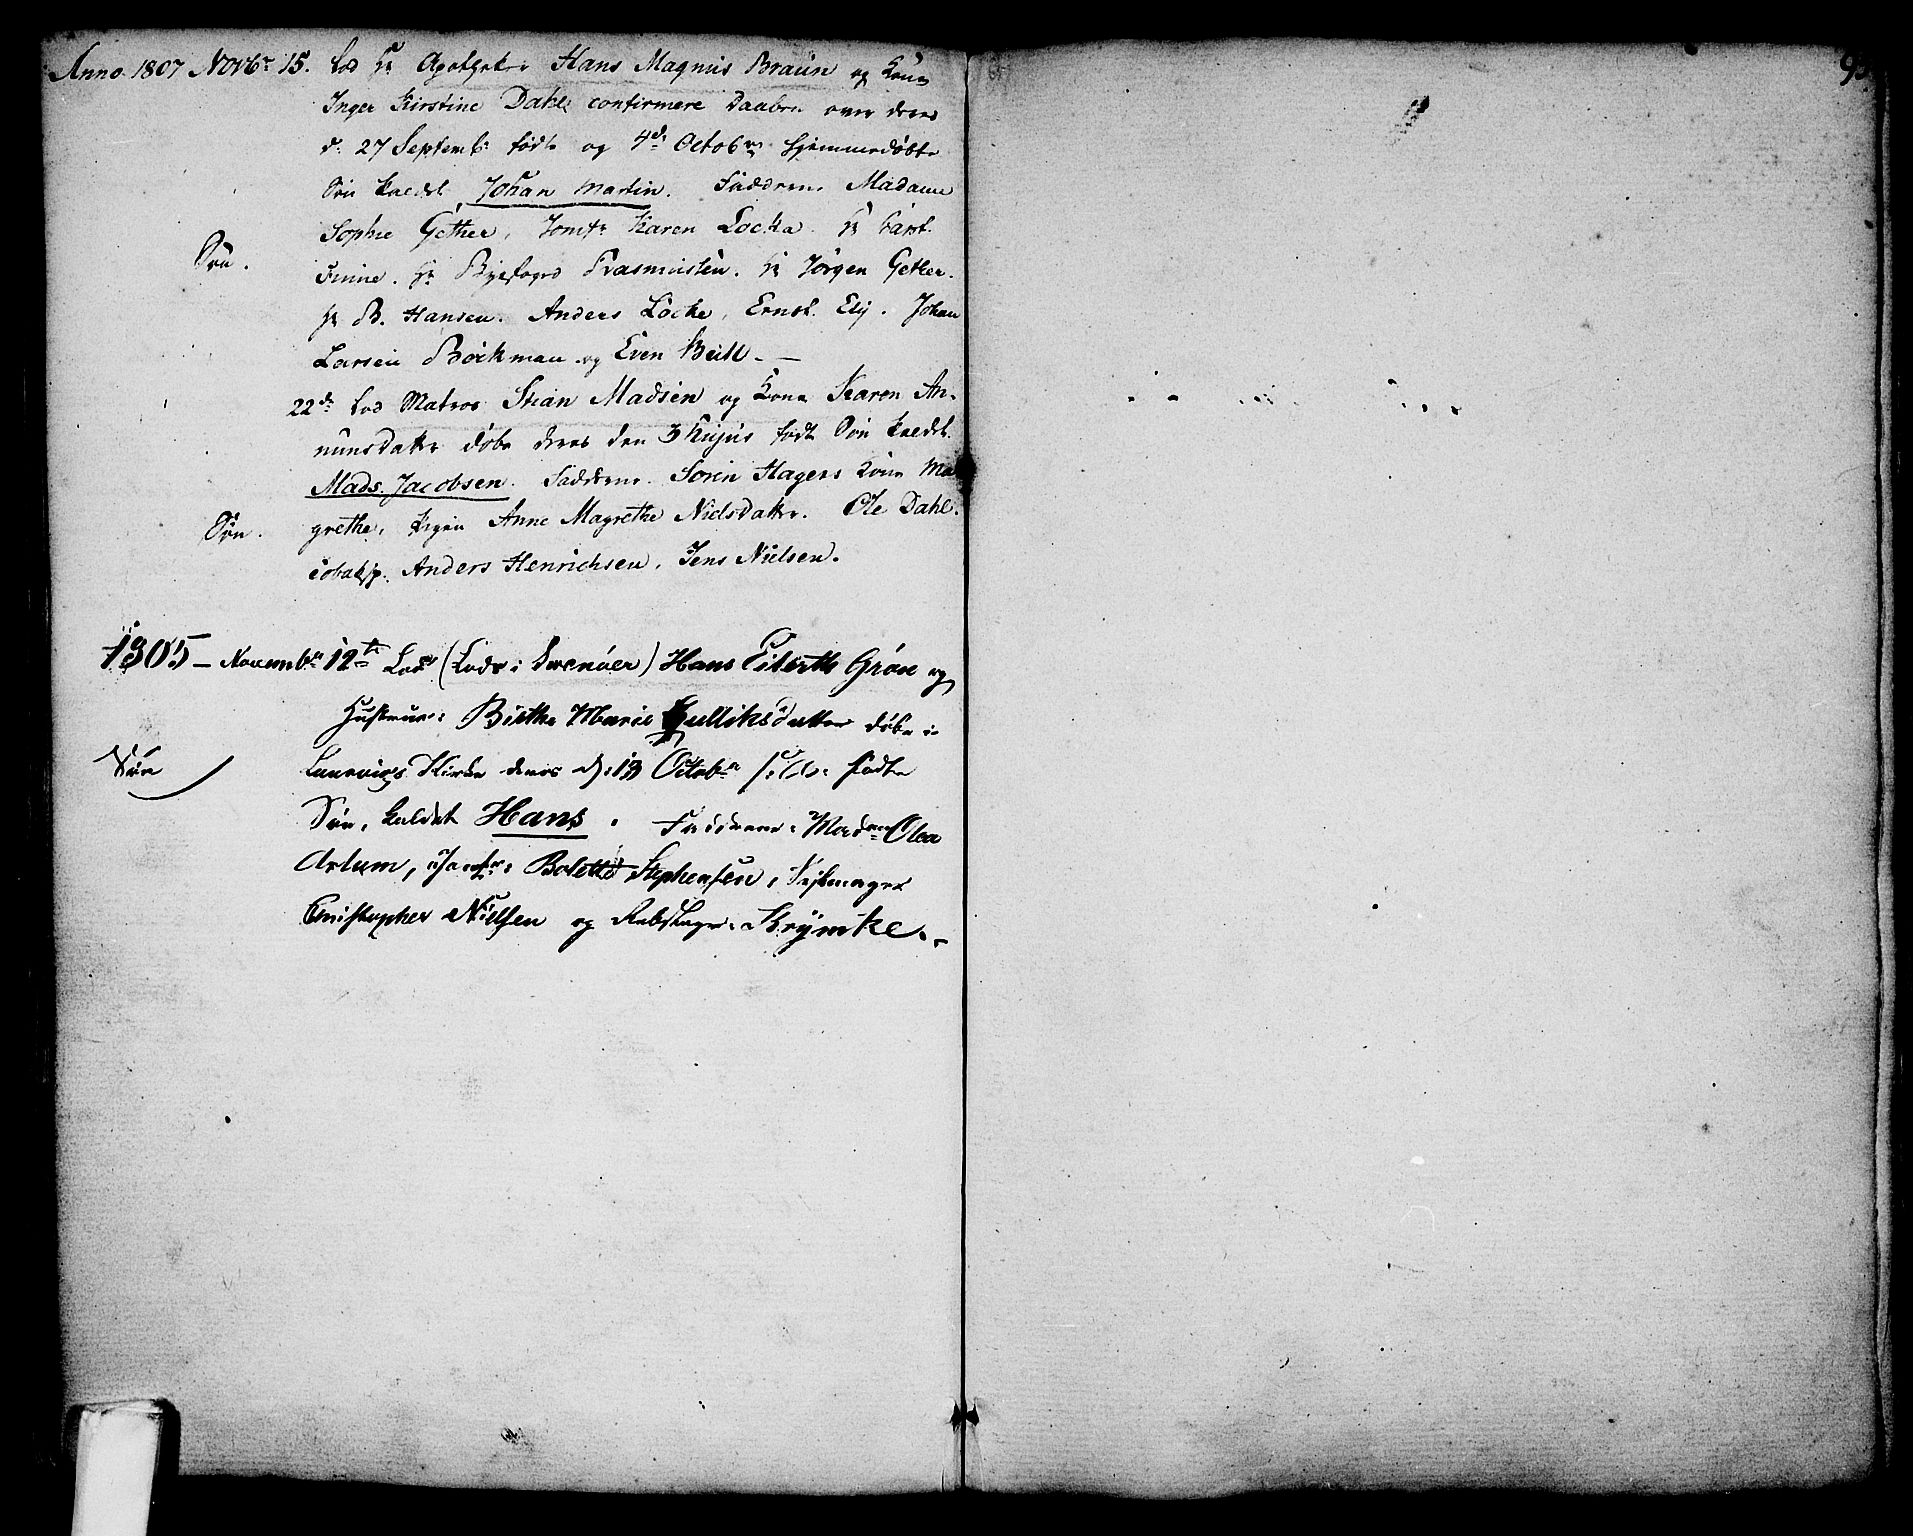 Anno 1807 Novbr 15. Lod Hr Apotheker Hans Magnus Braün og Kone
Inger Kirstine Dahl confirmere Daaben over deres
d. 27 Septembr fødte og 4de Octobr hjemmedøbte
Søn kaldet Johan Martin. Fadderne Madame
Sophie Gether, Jomfr Karen Locka. Hr Capt.
Søn.
Hr Byefoged Rasmussen. Hr Jörgen Gether.
Hr B. Hansen. Anders Locke, Ernst Ely. Johan
Larsen Böckman og Even Beül.
22de Lod Matros Stian Madsen og Kone Karen An-
nunsdatter døbe deres den 3 hujus født Søn kaldet
Mads Jacobsen. Fadderne. Soren Hagers Kone Ma
Søn. grethe, Pigen Anne Magrethe Nielsdatter. Ole Dahl.
Anders Henrichsen, Jens Nielsen.
1805 – Novembr 12te Lod (Lods i Svenöer) Hans Eilerth Grön og
Hustrue: Birthe Marie Gulliksdatter døbe i
Søn
Laurvigs Kirke deres d: 13 Octobr fødte
Søn, kaldet Hans. Fadderne: Madme Olea
Arlum, Jomfr: Bolette Stephensen, Sejlmager
Christopher Nielsen og Rebslager Krÿmke.